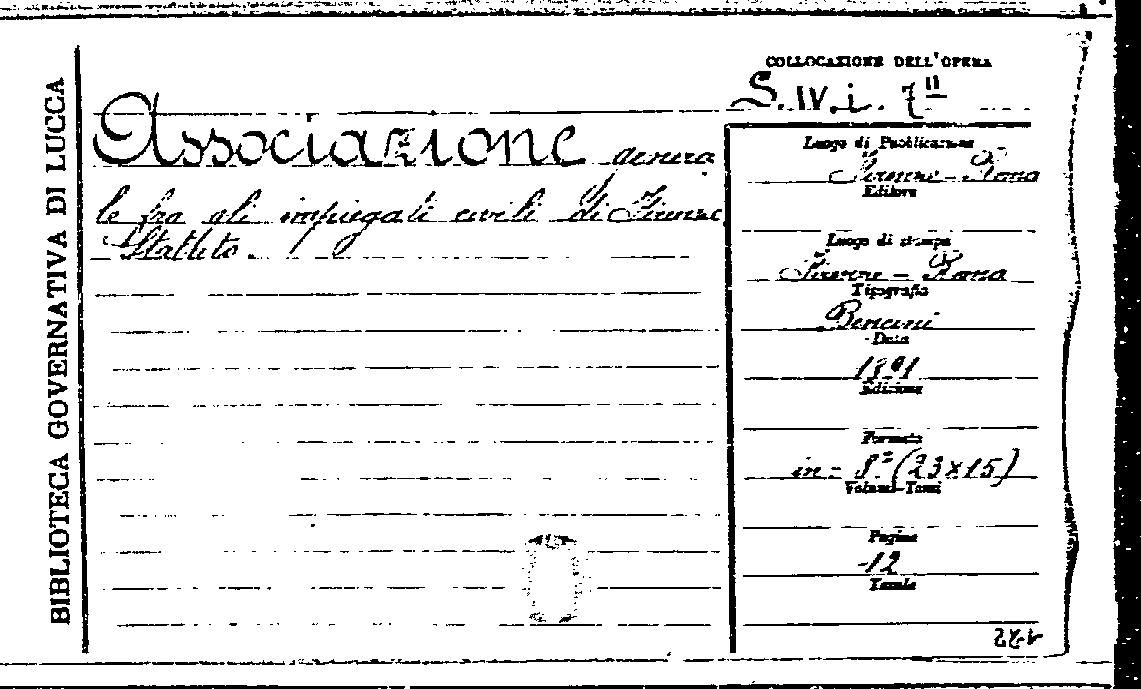 BIBLIOTECA GOVERNATIVA DI LUCCA
COLLOCAZIONE DELL'OPERA
S. IV. i. 7 II
Associazione genera
le fra gli impiegati civili di Firenze
Statuto.
Luogo di Pubblicazione
Firenze - Roma
Editore
Luogo di stampa
Firenze - Roma
Tipografia
Bencini
Data
Edizione
Formato
in - 8° (23x15)
Volumi-Tomi
Pagine
12
Tavole